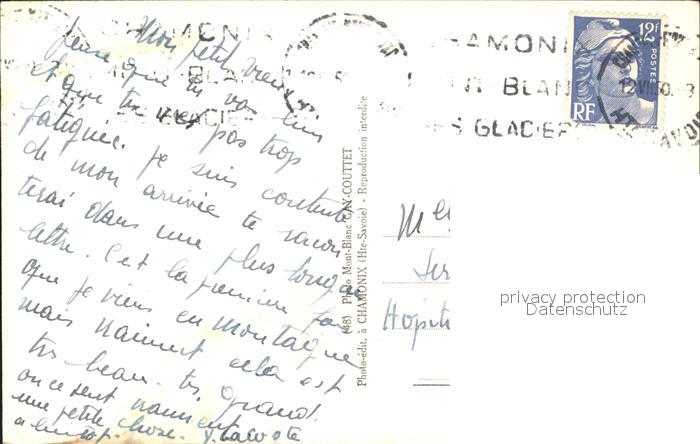 CHAMONIX
MONT-BLANC
SES GLACIERS
CHAMONIX
MONT-BLANC
SES GLACIERS
12F
POSTES
RF
Mon petit vieux
pense que tu vas bien
et que tu n'es pas trop
fatiguée. Je suis contente
de mon arrivée te racon
terai dans une plus longue
lettre. C'est la première fois
que je viens en montagne
mais vraiment cela est
très beau. très grand.
on se sent vraiment
une petite chose. Y. Lacoste
a bientôt.
(48) Photo Mont-Blanc GAY-COUTTET
Photo-édit. à CHAMONIX (Hte-Savoie) - Reproduction interdite
Melle
Ser
Hôpit
privacy protection
Datenschutz